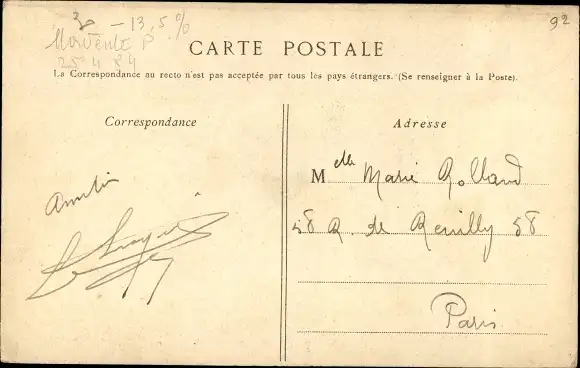 92
- 13,5 %
CARTE POSTALE
La Correspondance au recto n'est pas acceptée par tous les pays étrangers. (Se renseigner à la Poste).
Correspondance
Adresse
Melle Marie Rolland
58 R. de Reuilly 58
Paris